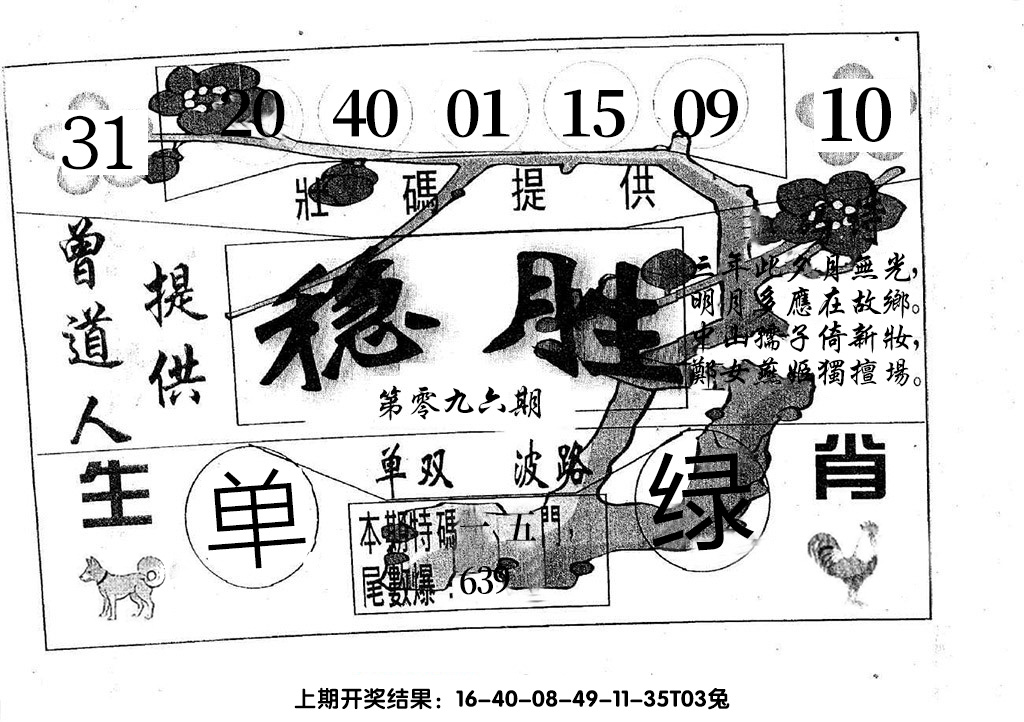 31 20 40 01 15 09 10
壯碼提供
特
曾道人
提供
稳胜
第零九六期
三年此夕月無光，
明月多應在故鄉。
東山孺子倚新妝，
鄭女燕姬獨擅場。
单双 波路
生肖
单
绿
本期特碼一、五門，
尾數爆：639
上期开奖结果：16-40-08-49-11-35T03兔